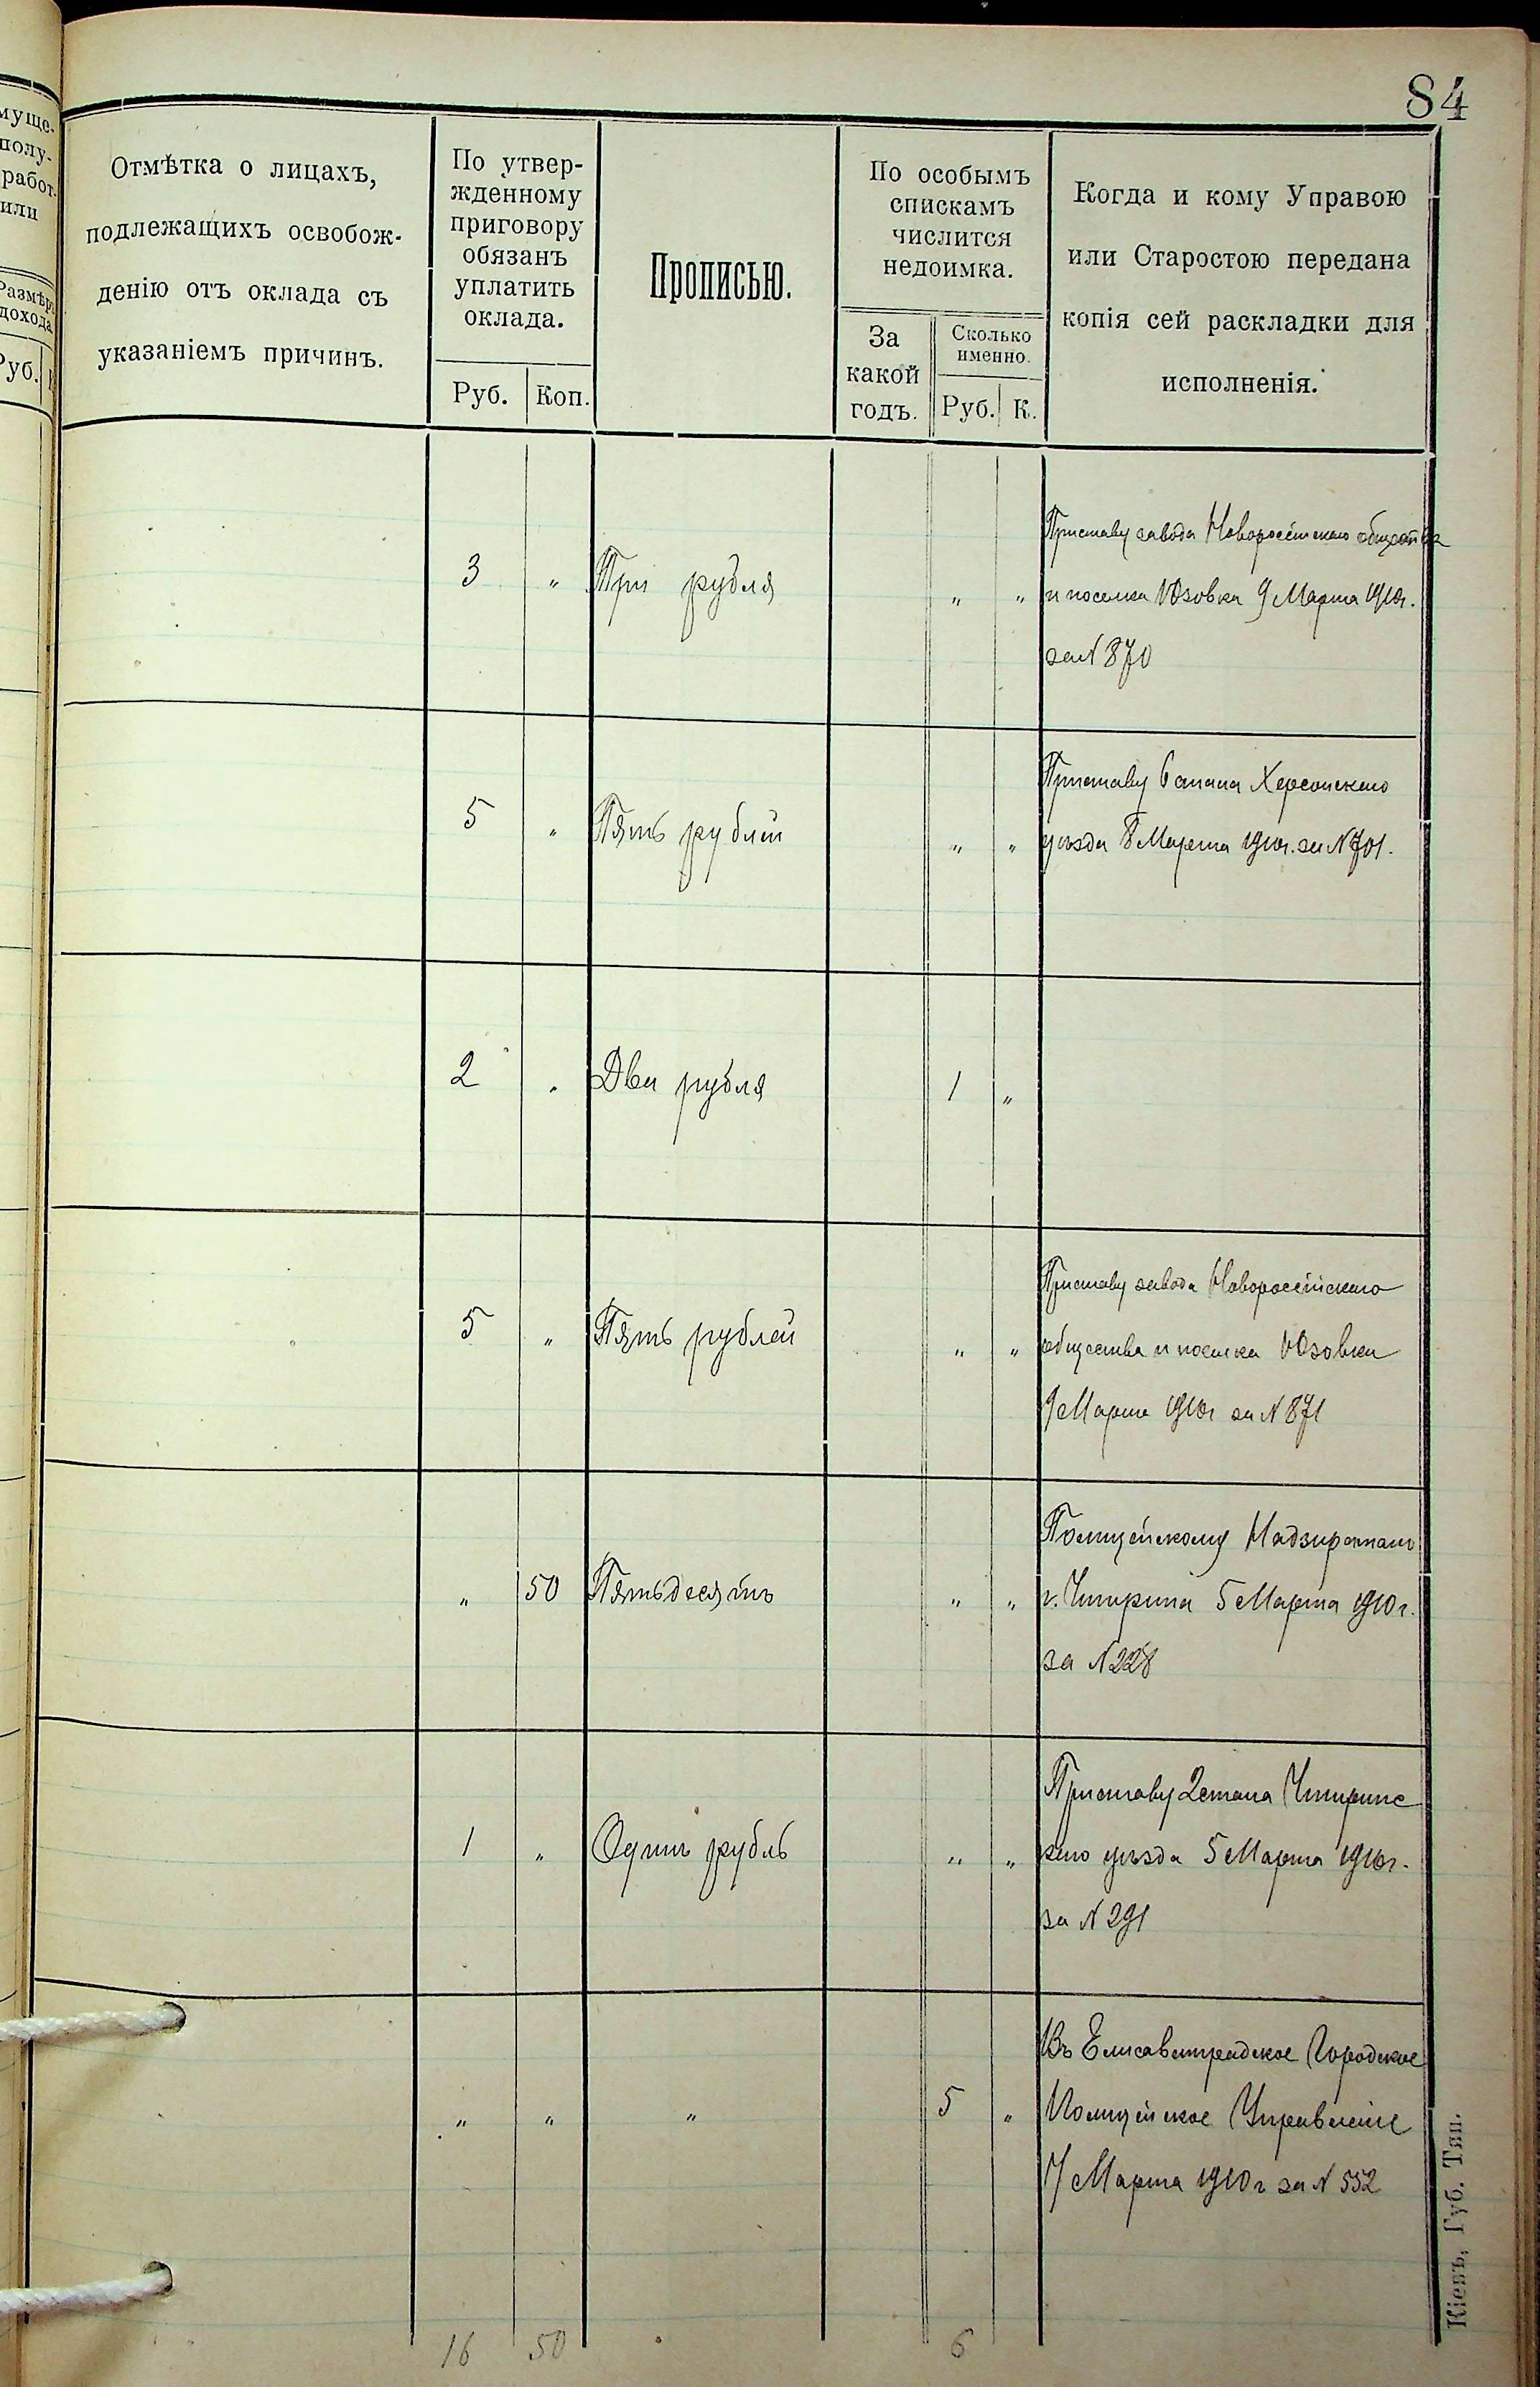 84
муще-
полу-
работ.
или
Размѣръ
дохода
Руб.
Отмѣтка о лицахъ,
подлежащихъ освобож-
денію отъ оклада съ
указаніемъ причинъ.
По утвер-
жденному
приговору
обязанъ
уплатить
оклада.
Руб. Коп.
Прописью.
По особымъ
спискамъ
числится
недоимка.
За
какой
годъ.
Сколько
именно.
Руб. К.
Когда и кому Управою
или Старостою передана
копія сей раскладки для
исполненія.
3 " Три рубля " "
Приставу завода Новороссійскаго общества
и поселка Юзовка 9 Марта 1910г.
за N 870
5 " Пять рублей " "
Приставу 6 стана Херсонскаго
уѣзда 8 Марта 1910г. за N 701.
2 " Два рубля 1 "
5 " Пять рублей " "
Приставу завода Новороссійскаго
общества и поселка Юзовки
9 Марта 1910г за N 871
" 50 Пятьдесятъ " "
Полицейскому Надзирателю
г. Чигирина 5 Марта 1910г.
за N 228
1 " Одинъ рубль " "
Приставу 2 стана Чигиринс
каго уѣзда 5 Марта 1910г.
за N 291
" " " 5 "
Въ Елисаветградское Городское
Полицейское Управленіе
7 Марта 1910г за N 552
16 50 6
Кіевъ, Губ. Тип.